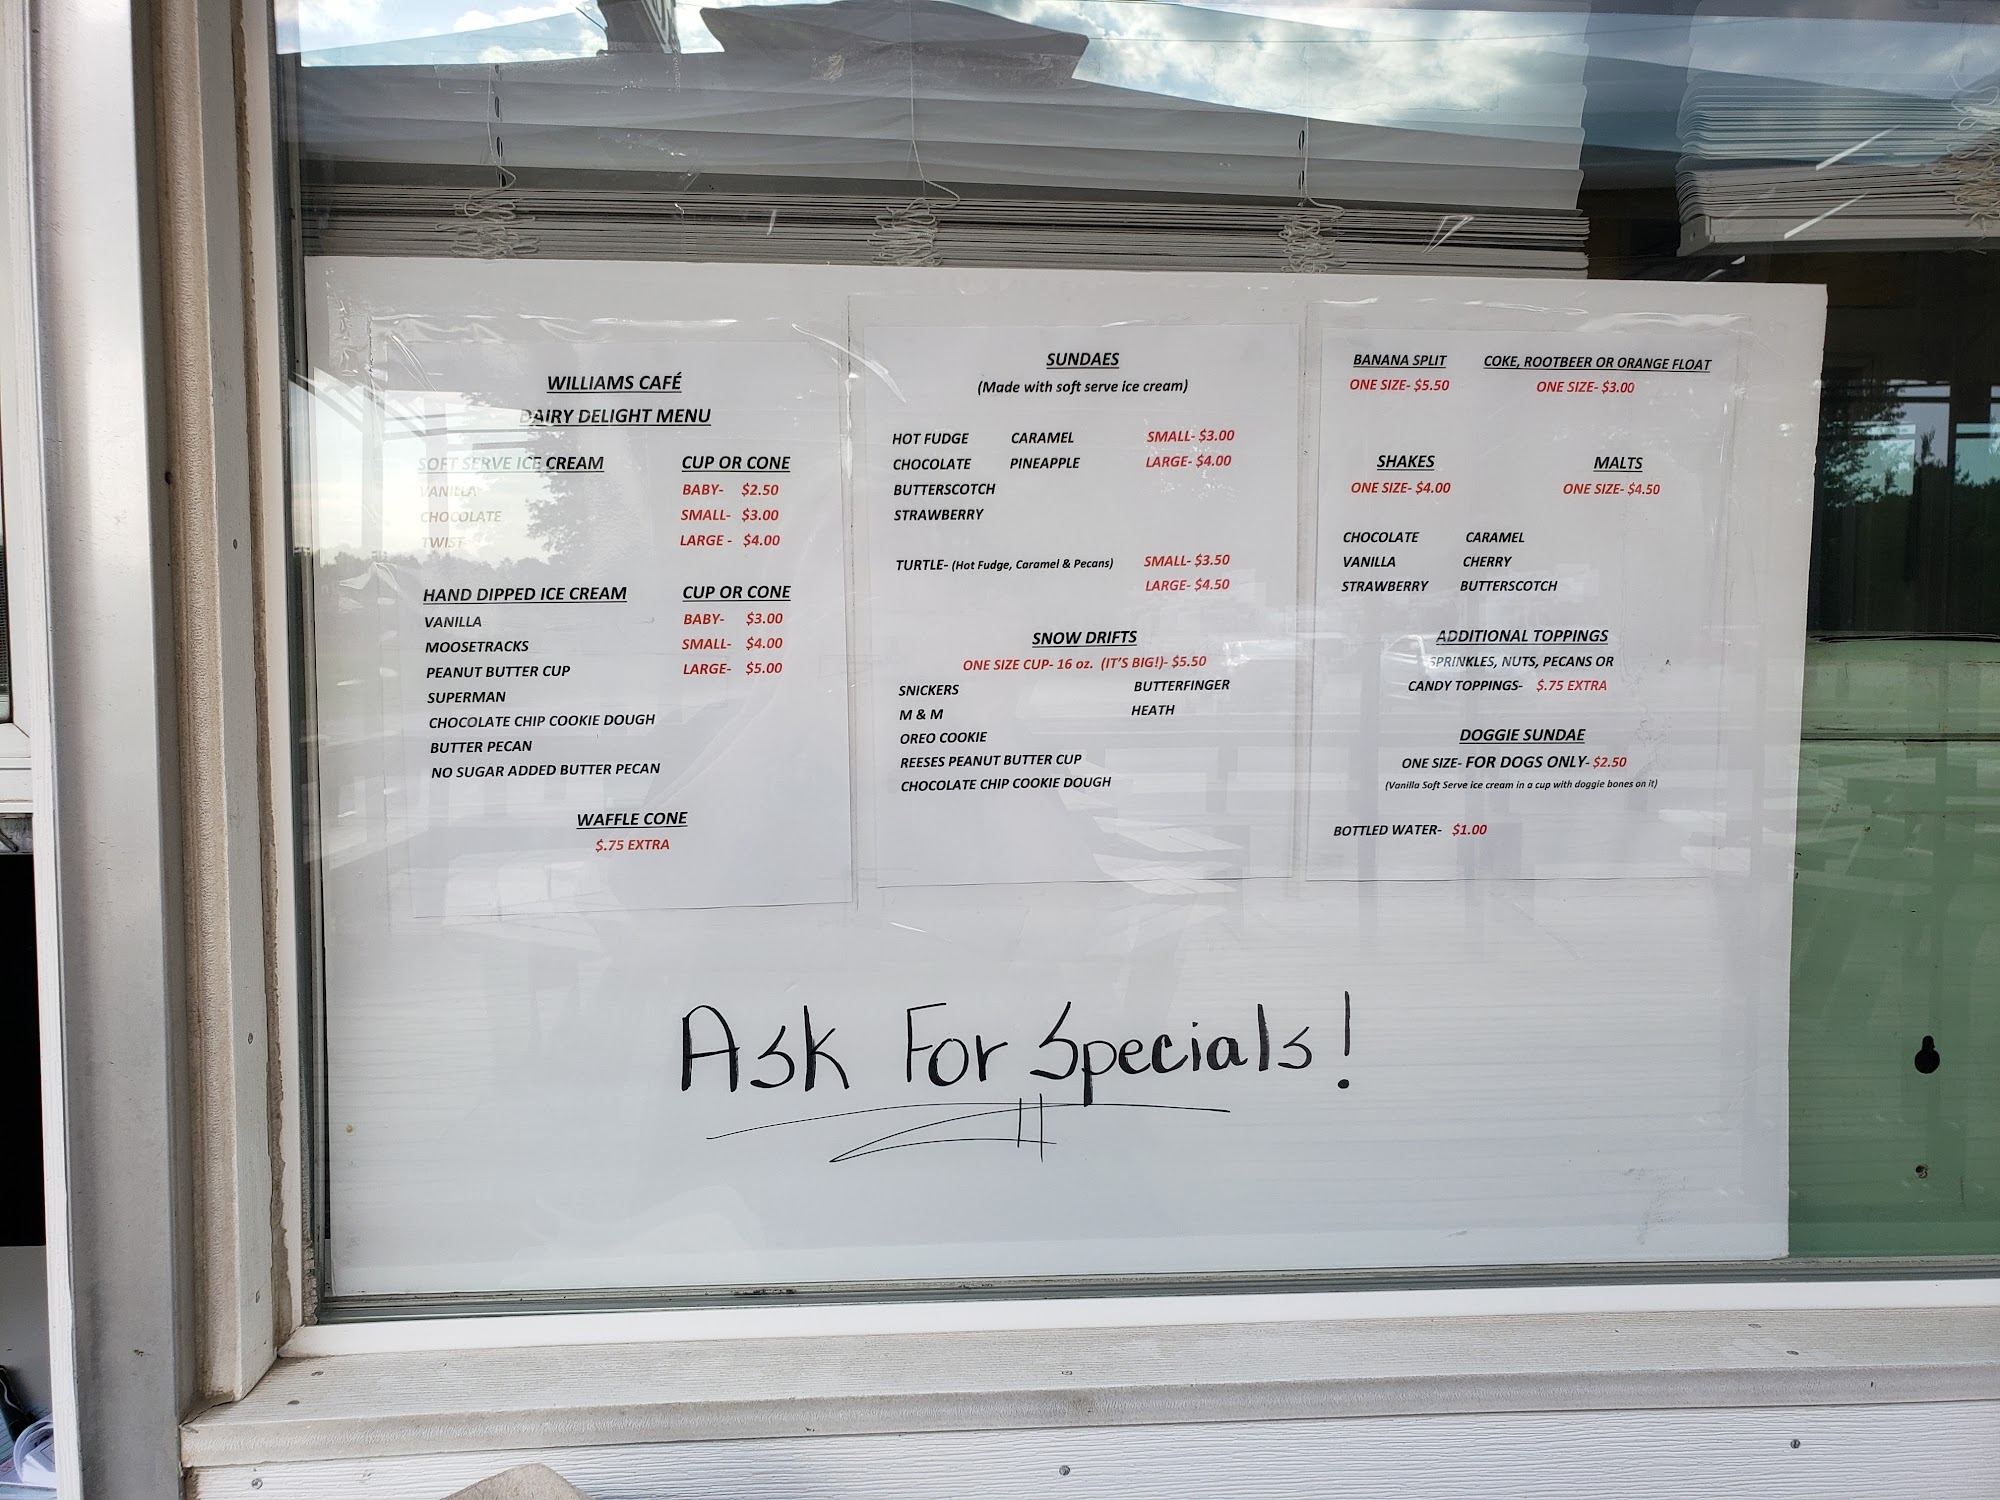 WILLIAMS CAFÉ
DAIRY DELIGHT MENU
SOFT SERVE ICE CREAM CUP OR CONE
VANILLA BABY- $2.50
CHOCOLATE SMALL- $3.00
TWIST LARGE - $4.00
HAND DIPPED ICE CREAM CUP OR CONE
VANILLA BABY- $3.00
MOOSETRACKS SMALL- $4.00
PEANUT BUTTER CUP LARGE- $5.00
SUPERMAN
CHOCOLATE CHIP COOKIE DOUGH
BUTTER PECAN
NO SUGAR ADDED BUTTER PECAN
WAFFLE CONE
$.75 EXTRA
SUNDAES
(Made with soft serve ice cream)
HOT FUDGE CARAMEL SMALL- $3.00
CHOCOLATE PINEAPPLE LARGE- $4.00
BUTTERSCOTCH
STRAWBERRY
TURTLE- (Hot Fudge, Caramel & Pecans) SMALL- $3.50
LARGE- $4.50
SNOW DRIFTS
ONE SIZE CUP- 16 oz. (IT'S BIG!)- $5.50
SNICKERS BUTTERFINGER
M & M HEATH
OREO COOKIE
REESES PEANUT BUTTER CUP
CHOCOLATE CHIP COOKIE DOUGH
BANANA SPLIT COKE, ROOTBEER OR ORANGE FLOAT
ONE SIZE- $5.50 ONE SIZE- $3.00
SHAKES MALTS
ONE SIZE- $4.00 ONE SIZE- $4.50
CHOCOLATE CARAMEL
VANILLA CHERRY
STRAWBERRY BUTTERSCOTCH
ADDITIONAL TOPPINGS
SPRINKLES, NUTS, PECANS OR
CANDY TOPPINGS- $.75 EXTRA
DOGGIE SUNDAE
ONE SIZE- FOR DOGS ONLY- $2.50
(Vanilla Soft Serve ice cream in a cup with doggie bones on it)
BOTTLED WATER- $1.00
Ask For Specials!